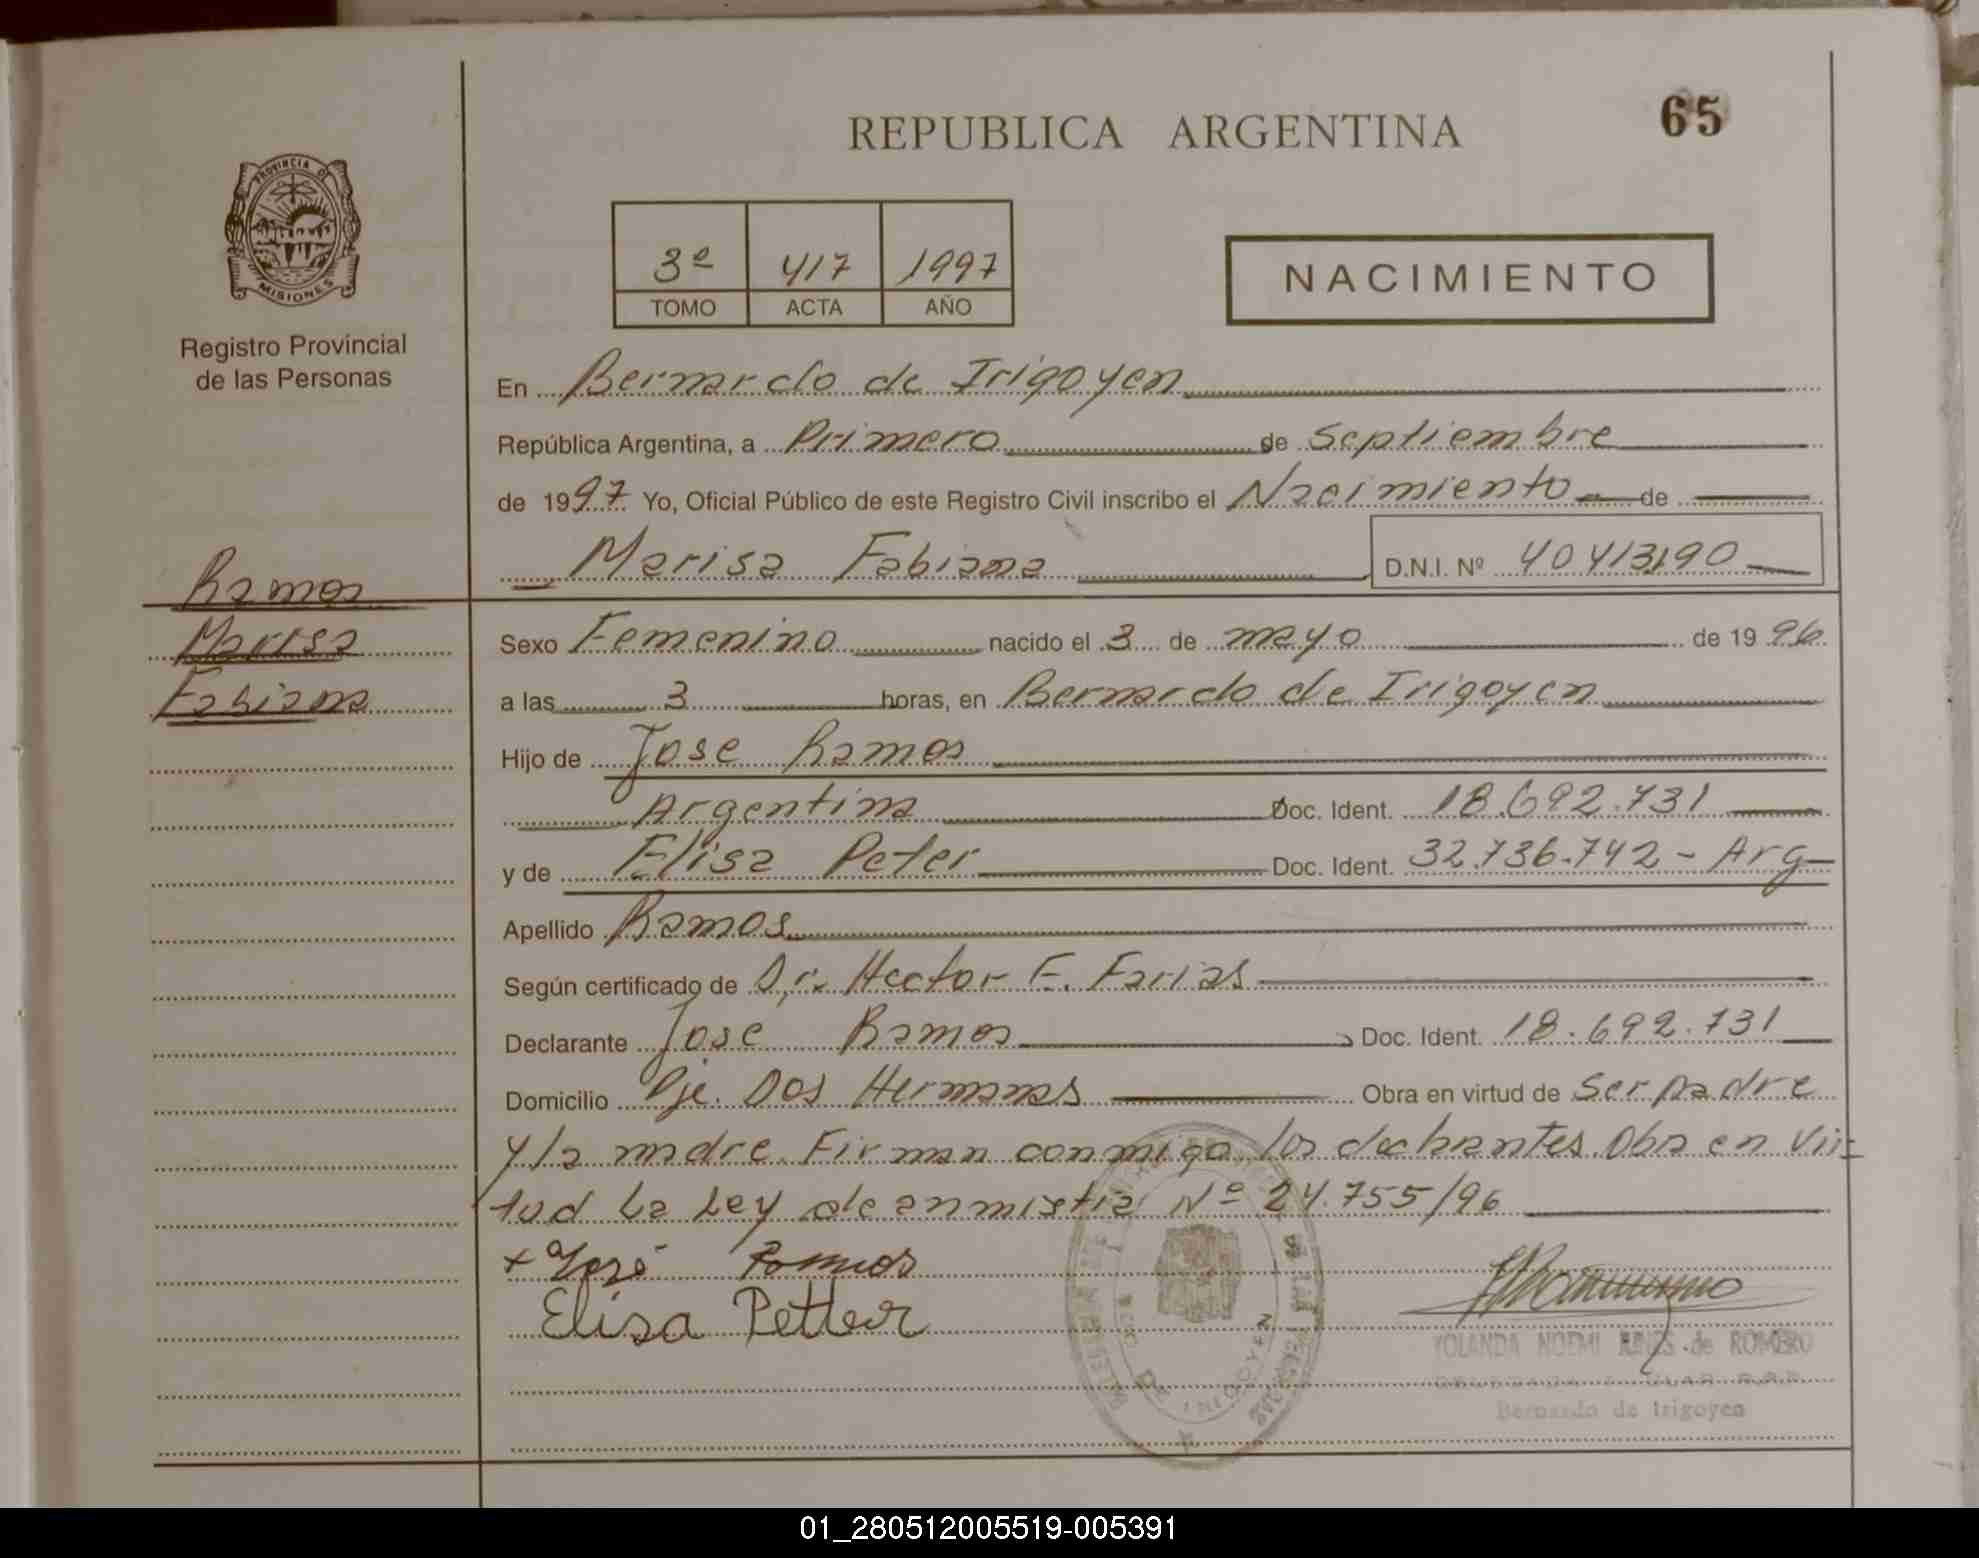 REPUBLICA ARGENTINA
65
PROVINCIA DE
MISIONES
Registro Provincial
de las Personas
3º 417 1997
TOMO ACTA AÑO
NACIMIENTO
En Bernardo de Irigoyen
República Argentina, a Primero de Septiembre
de 1997 Yo, Oficial Público de este Registro Civil inscribo el Nacimiento de
Marisa Fabiana D.N.I. Nº 40413190
Ramos
Marisa
Fabiana
Sexo Femenino nacido el 3 de mayo de 1996
a las 3 horas, en Bernardo de Irigoyen
Hijo de Jose Ramos
Argentina Doc. Ident. 18.692.731
y de Elisa Peter Doc. Ident. 32.736.742 - Arg
Apellido Ramos
Según certificado de Dr. Hector F. Farias
Declarante Jose Ramos Doc. Ident. 18.692.731
Domicilio Pje. Dos Hermanas Obra en virtud de Ser padre
y la madre. Firman conmigo los declarantes. Obra en vir=
tud La Ley de anmistia Nº 24.755/96
+ José Ramos
Elisa Petter
YOLANDA NOEMI de ROMERO
Bernardo de Irigoyen
01_280512005519-005391